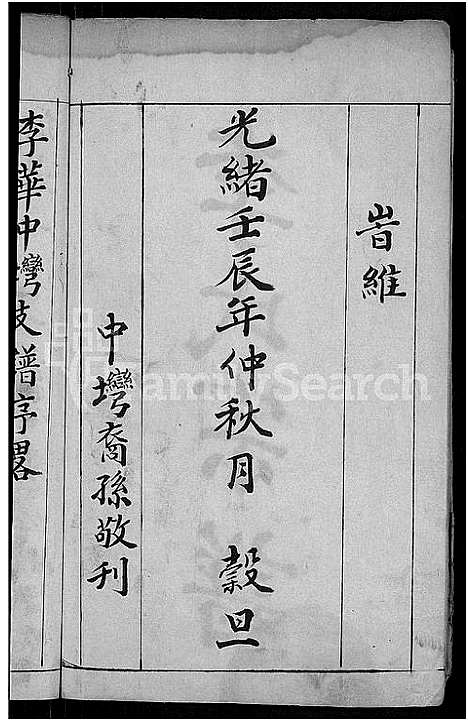 旹維
光緒壬辰年仲秋月 穀旦
中塆裔孫敬刋
李華中灣支譜序畧
FamilySearch